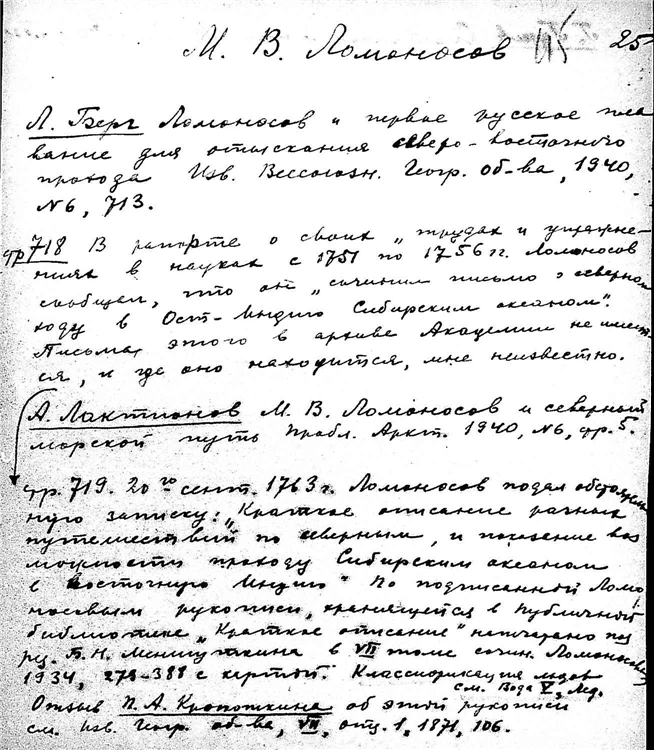 М. В. Ломоносов 25
Л. Берг Ломоносов и первое русское пла
вание для отыскания северо-восточного
прохода Изв. Всесоюзн. Геогр. об-ва, 1940,
№6, 713.
стр 718 В рапорте о своих „трудах и упражне-
ниях в науках с 1751 по 1756 гг. Ломоносов
сообщал, что он „сочинил письмо о северном
ходу в Ост-Индию Сибирским океаном".
Письма этого в архиве Академии не имеет-
ся, и где оно находится, мне неизвестно.
А. Лактионов М. В. Ломоносов и северный
морской путь Пробл. Аркт. 1940, №6, стр. 5.
стр. 719. 20го сент. 1763 г. Ломоносов подал обстоятель
ную записку: „Краткое описание разных
путешествий по северным, и показание воз
можности проходу Сибирским океаном
в Восточную Индию" По подписанной Ломо
носовым рукописи, хранящейся в Публичной
библиотеке „Краткое описание" напечатано под
ред. Б. Н. Меншуткина в VII томе сочин. Ломоносова
1934, 273-388 с картой. Классификация льдов
см. Вода V, Лед.
Отзыв П. А. Кропоткина об этой рукописи
см. Изв. Геогр. об-ва, VII, отд. 1, 1871, 106.